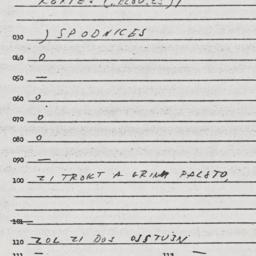 030 ) SPODNICES
040 0
050 —
060 0
070 0
080 0
090 —
100 ZI TROKT A GRINM PALETO,
101
110 ZOL ZI DOS OISTUJN
111 — 113 —